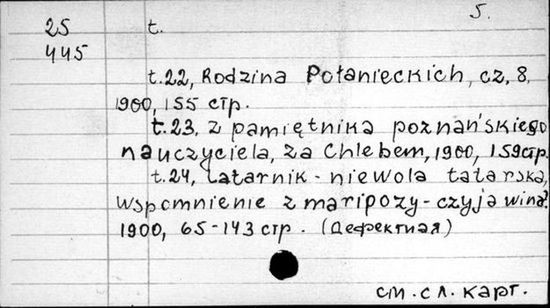 5.
25 t.
445
t.22, Rodzina Połanieckich, cz, 8,
1900, 155 стр.
t.23, z pamiętnika poznańskiego
nauczyciela, Za Chlebem, 1900, 159стр.
t.24, Latarnik - niewola tatarska,
wspomnienie z maripozy - czyja wina?
1900, 65-143 стр. (Дефектная)
см. сл. карт.